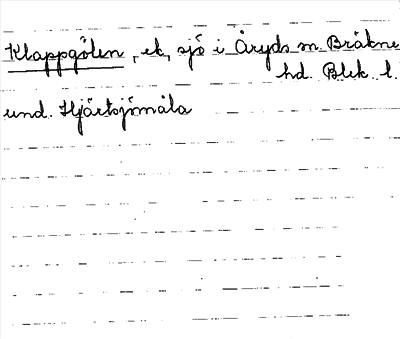 Klappgölen, ek, sjö i Åryds sn. Bräkne
hd. Blek. l.
und. Hjärtsjömåla